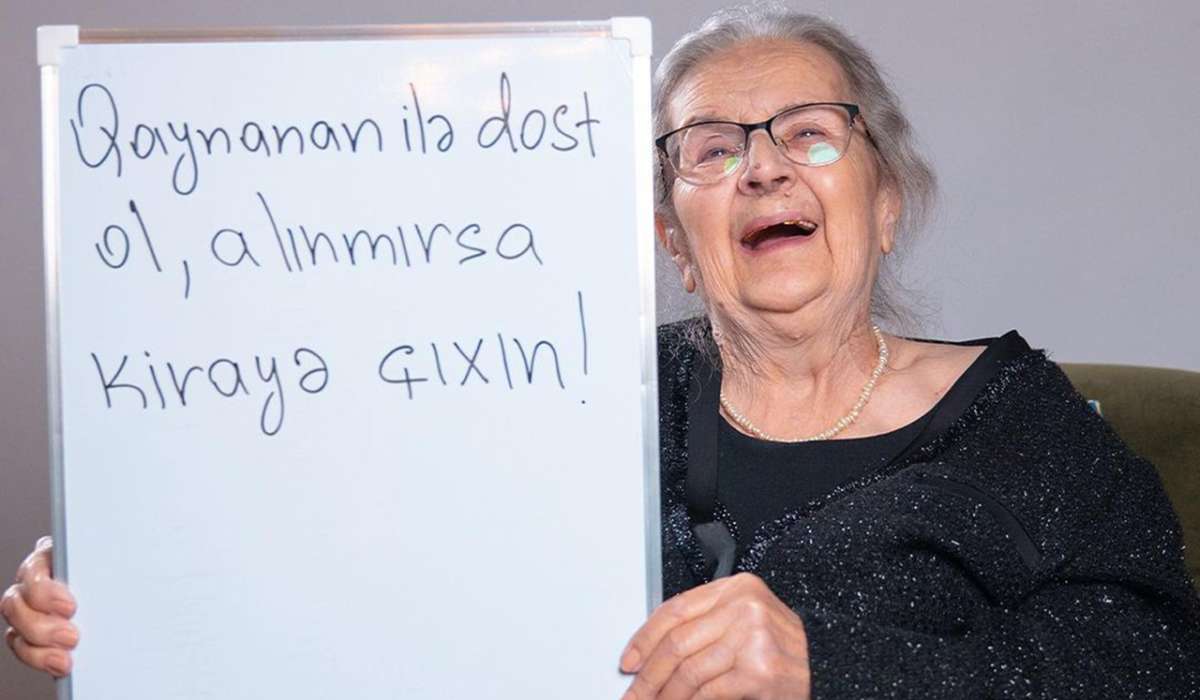 Qaynanan ilə dost
ol, alınmırsa
kirayə çıxın!